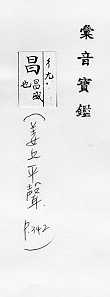 彙音寶鑑
彳九·
昌 昌盛也
(姜上平聲 P.342)